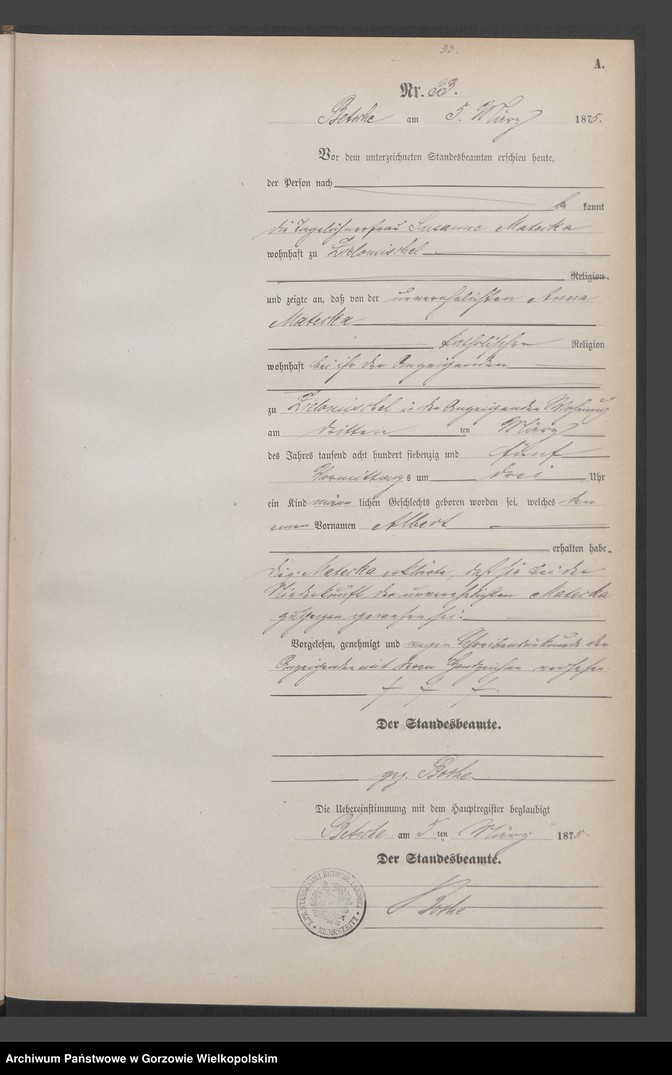 33.
A.
Nr. 33.
Betsche am 5. März 1875.
Vor dem unterzeichneten Standesbeamten erschien heute,
der Person nach
be kannt
die Tagelöhnerfrau Susanne Materka
wohnhaft zu
Religion
und zeigte an, daß von der unverehelichten Anna
Materka
katholischer Religion
wohnhaft bei ihr der Anzeigenden
zu in der Anzeigenden Wohnung
am dritten ten März
des Jahres tausend acht hundert siebenzig und fünf
Vormittags um drei Uhr
ein Kind männlichen Geschlechts geboren worden sei, welches den
einen Vornamen Albert
erhalten habe.
Die Materka erklärte, daß sie bei der
Niederkunft der unverehelichten Materka
zugegen gewesen sei.
Vorgelesen, genehmigt und wegen der
Anzeigenden mit deren Handzeichen versehen
† † †
Der Standesbeamte.
gez. Bothe
Die Uebereinstimmung mit dem Hauptregister beglaubigt
Betsche am 5 ten März 1875.
Der Standesbeamte.
Bothe
Archiwum Państwowe w Gorzowie Wielkopolskim